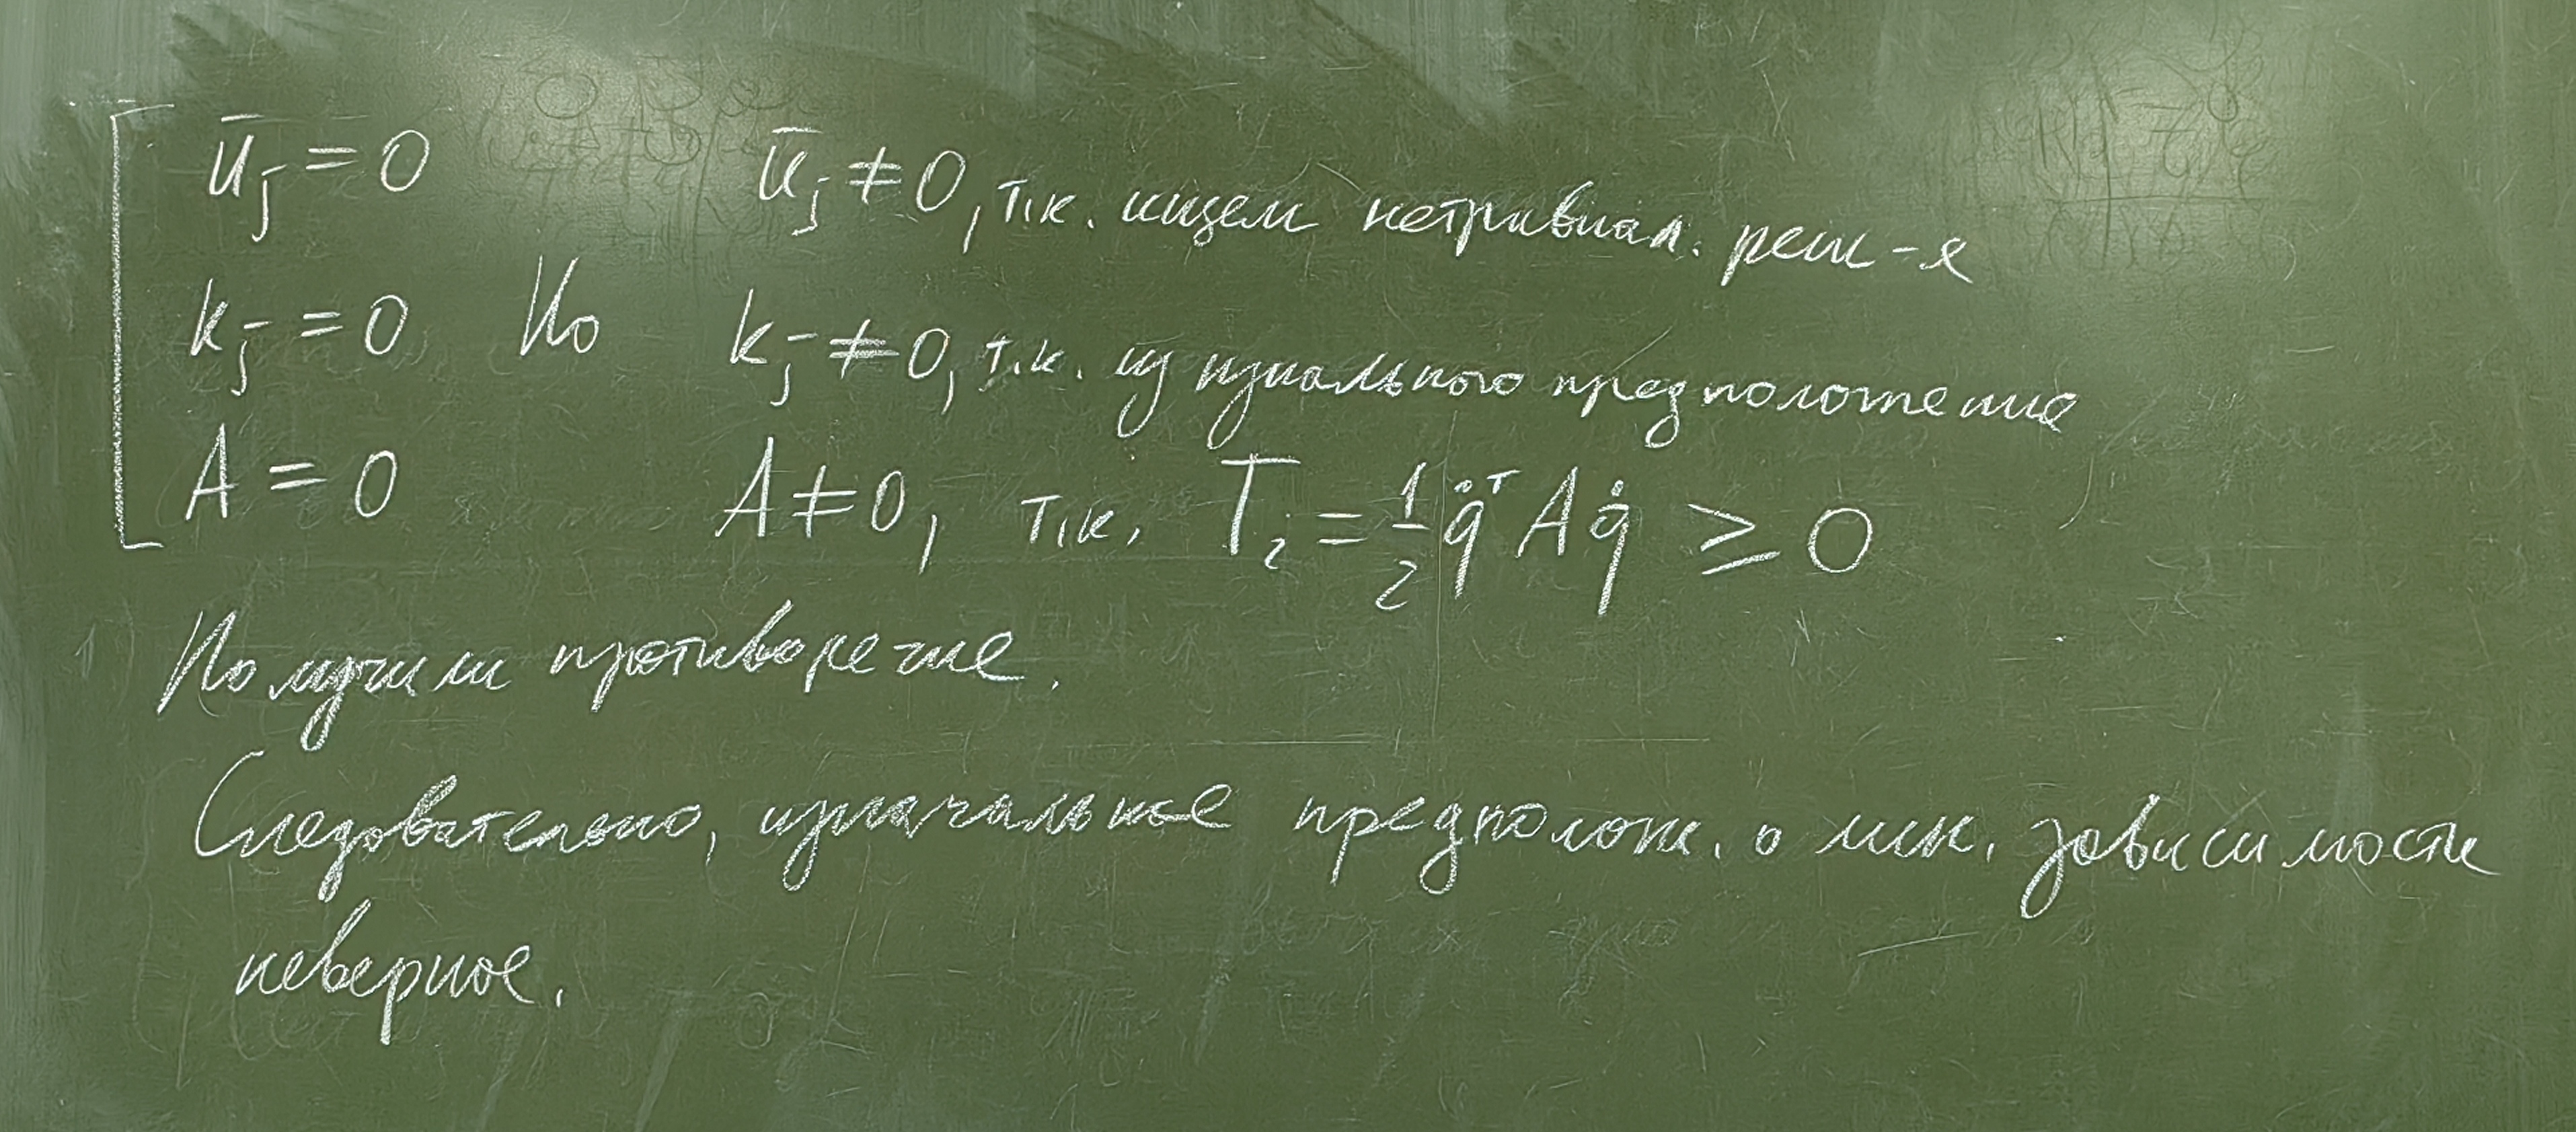 ū_j = 0 ū_j ≠ 0, т.к. ищем нетривиал. реш-я
k_j = 0 Но k_j ≠ 0, т.к. из изнального предположения
A = 0 A ≠ 0, т.к. T₂ = 1/2 q̇ᵀ A q̇ ≥ 0
Получили противоречие.
Следовательно, изначальное предполож. о лин. зависимости
неверное.